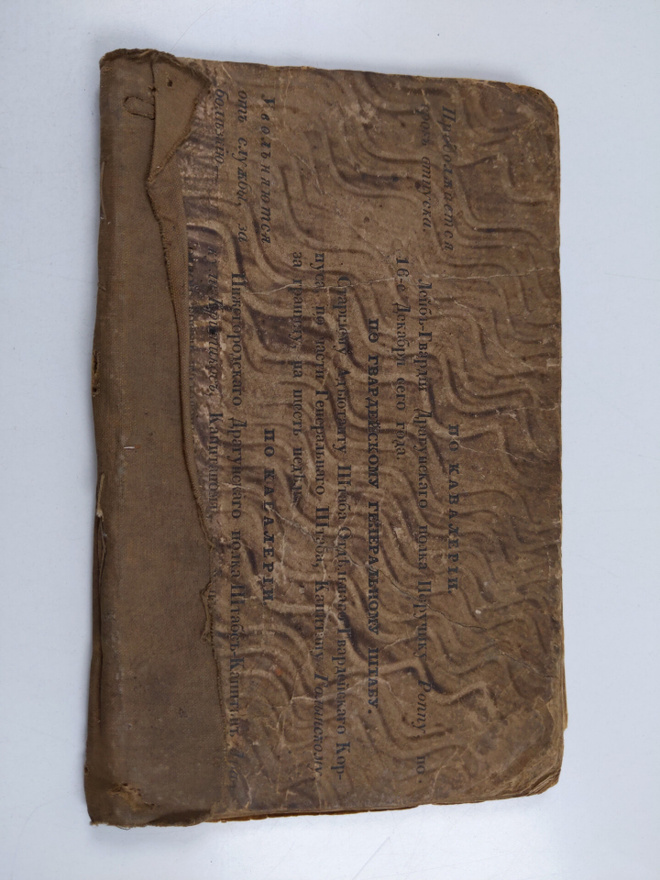 ПО КАВАЛЕРІИ
Продолжается
срокъ отпуска:
Лейбъ-Гвардіи Драгунскаго полка Поручику Роппу по
16-е Декабря сего года.
ПО ГВАРДЕЙСКОМУ ГЕНЕРАЛЬНОМУ ШТАБУ.
Старшему Адъютанту Штаба Отдѣльнаго Гвардейскаго Кор-
пуса по части Генеральнаго Штаба, Капитану
за границу, на шесть недѣль.
ПО КАВАЛЕРІИ
Увольняются
отъ службы, за
болѣзнію:
Нижегородскаго Драгунскаго полка Штабсъ-Капитанъ
Капитаномъ